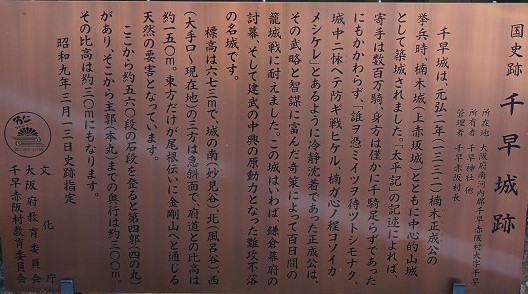 国史跡 千早城跡
所在地 大阪府南河内郡千早赤阪村大字千早
所有者 千早神社 他
管理者 千早赤阪村長
千早城は、元弘二年(一三三二)楠木正成公の
挙兵時、楠木城(上赤坂城)とともに中心的山城
として築城されました。「太平記」の記述によれば、
寄手は数百万騎、身方は僅かに千騎足らずであった
にもかかわらず、「誰ヲ憑ミイツヲ待ツトシモナク、
城中ニ怺ヘテ防ギ戦ヒケル、楠ガ心ノ程コソイカ
メシケレ」とあるように冷静沈着であった正成公は、
その武略と智謀に富んだ奇策によって百日間の
籠城戦に耐えました。この城はいわば、鎌倉幕府の
討幕、そして建武の中興の原動力となった難攻不落
の名城です。
標高は六七三mで、城の南(妙見谷)、北(風呂谷)、西
(大手口〜現在地)の三方は急斜面で、府道との比高は
約一五〇m。東方だけが尾根伝いに金剛山へと通じる
天然の要害となっています。
ここから約五六〇段の石段を登ると第四郭(四の丸)
があり、そこから主郭(本丸)までの奥行は約三〇〇m。
その比高は約三〇mにもなります。
昭和九年三月一三日史跡指定
文化庁
大阪府教育委員会
千早赤阪村教育委員会